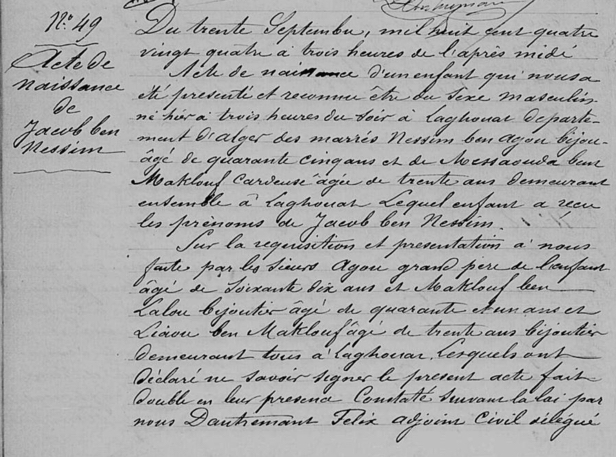 N.º 49
Acte de
Naissance
de
Jacob ben
Nessim
Du trente Septembre, mil huit cent quatre
vingt quatre à trois heures de l'après midi
Acte de naissance d'un enfant qui nous a
été présenté et reconnu être du sexe masculin
né hier à trois heures du soir à Laghouat departe-
ment d'Alger des mariés Nessim ben Agou bijou-
âgé de quarante cinq ans et de Messaouda bent
Maklouf Cardeuse âgée de trente ans demeurant
ensemble à Laghouat Lequel enfant a reçu
les prénoms de Jacob ben Nessim.
Sur la requisition et presentation à nous
faite par les Sieurs Agou grand pere de l'enfant
âgé de Soixante dix ans et Maklouf ben
Lalou bijoutier âgé de quarante et un ans et
Liaou ben Maklouf âgé de trente ans bijoutier
demeurant tous à Laghouat. Lesquels ont
déclaré ne savoir signer le present acte fait
double en leur presence Constaté suivant la loi par
nous Dautremant Felix adjoint Civil délégué